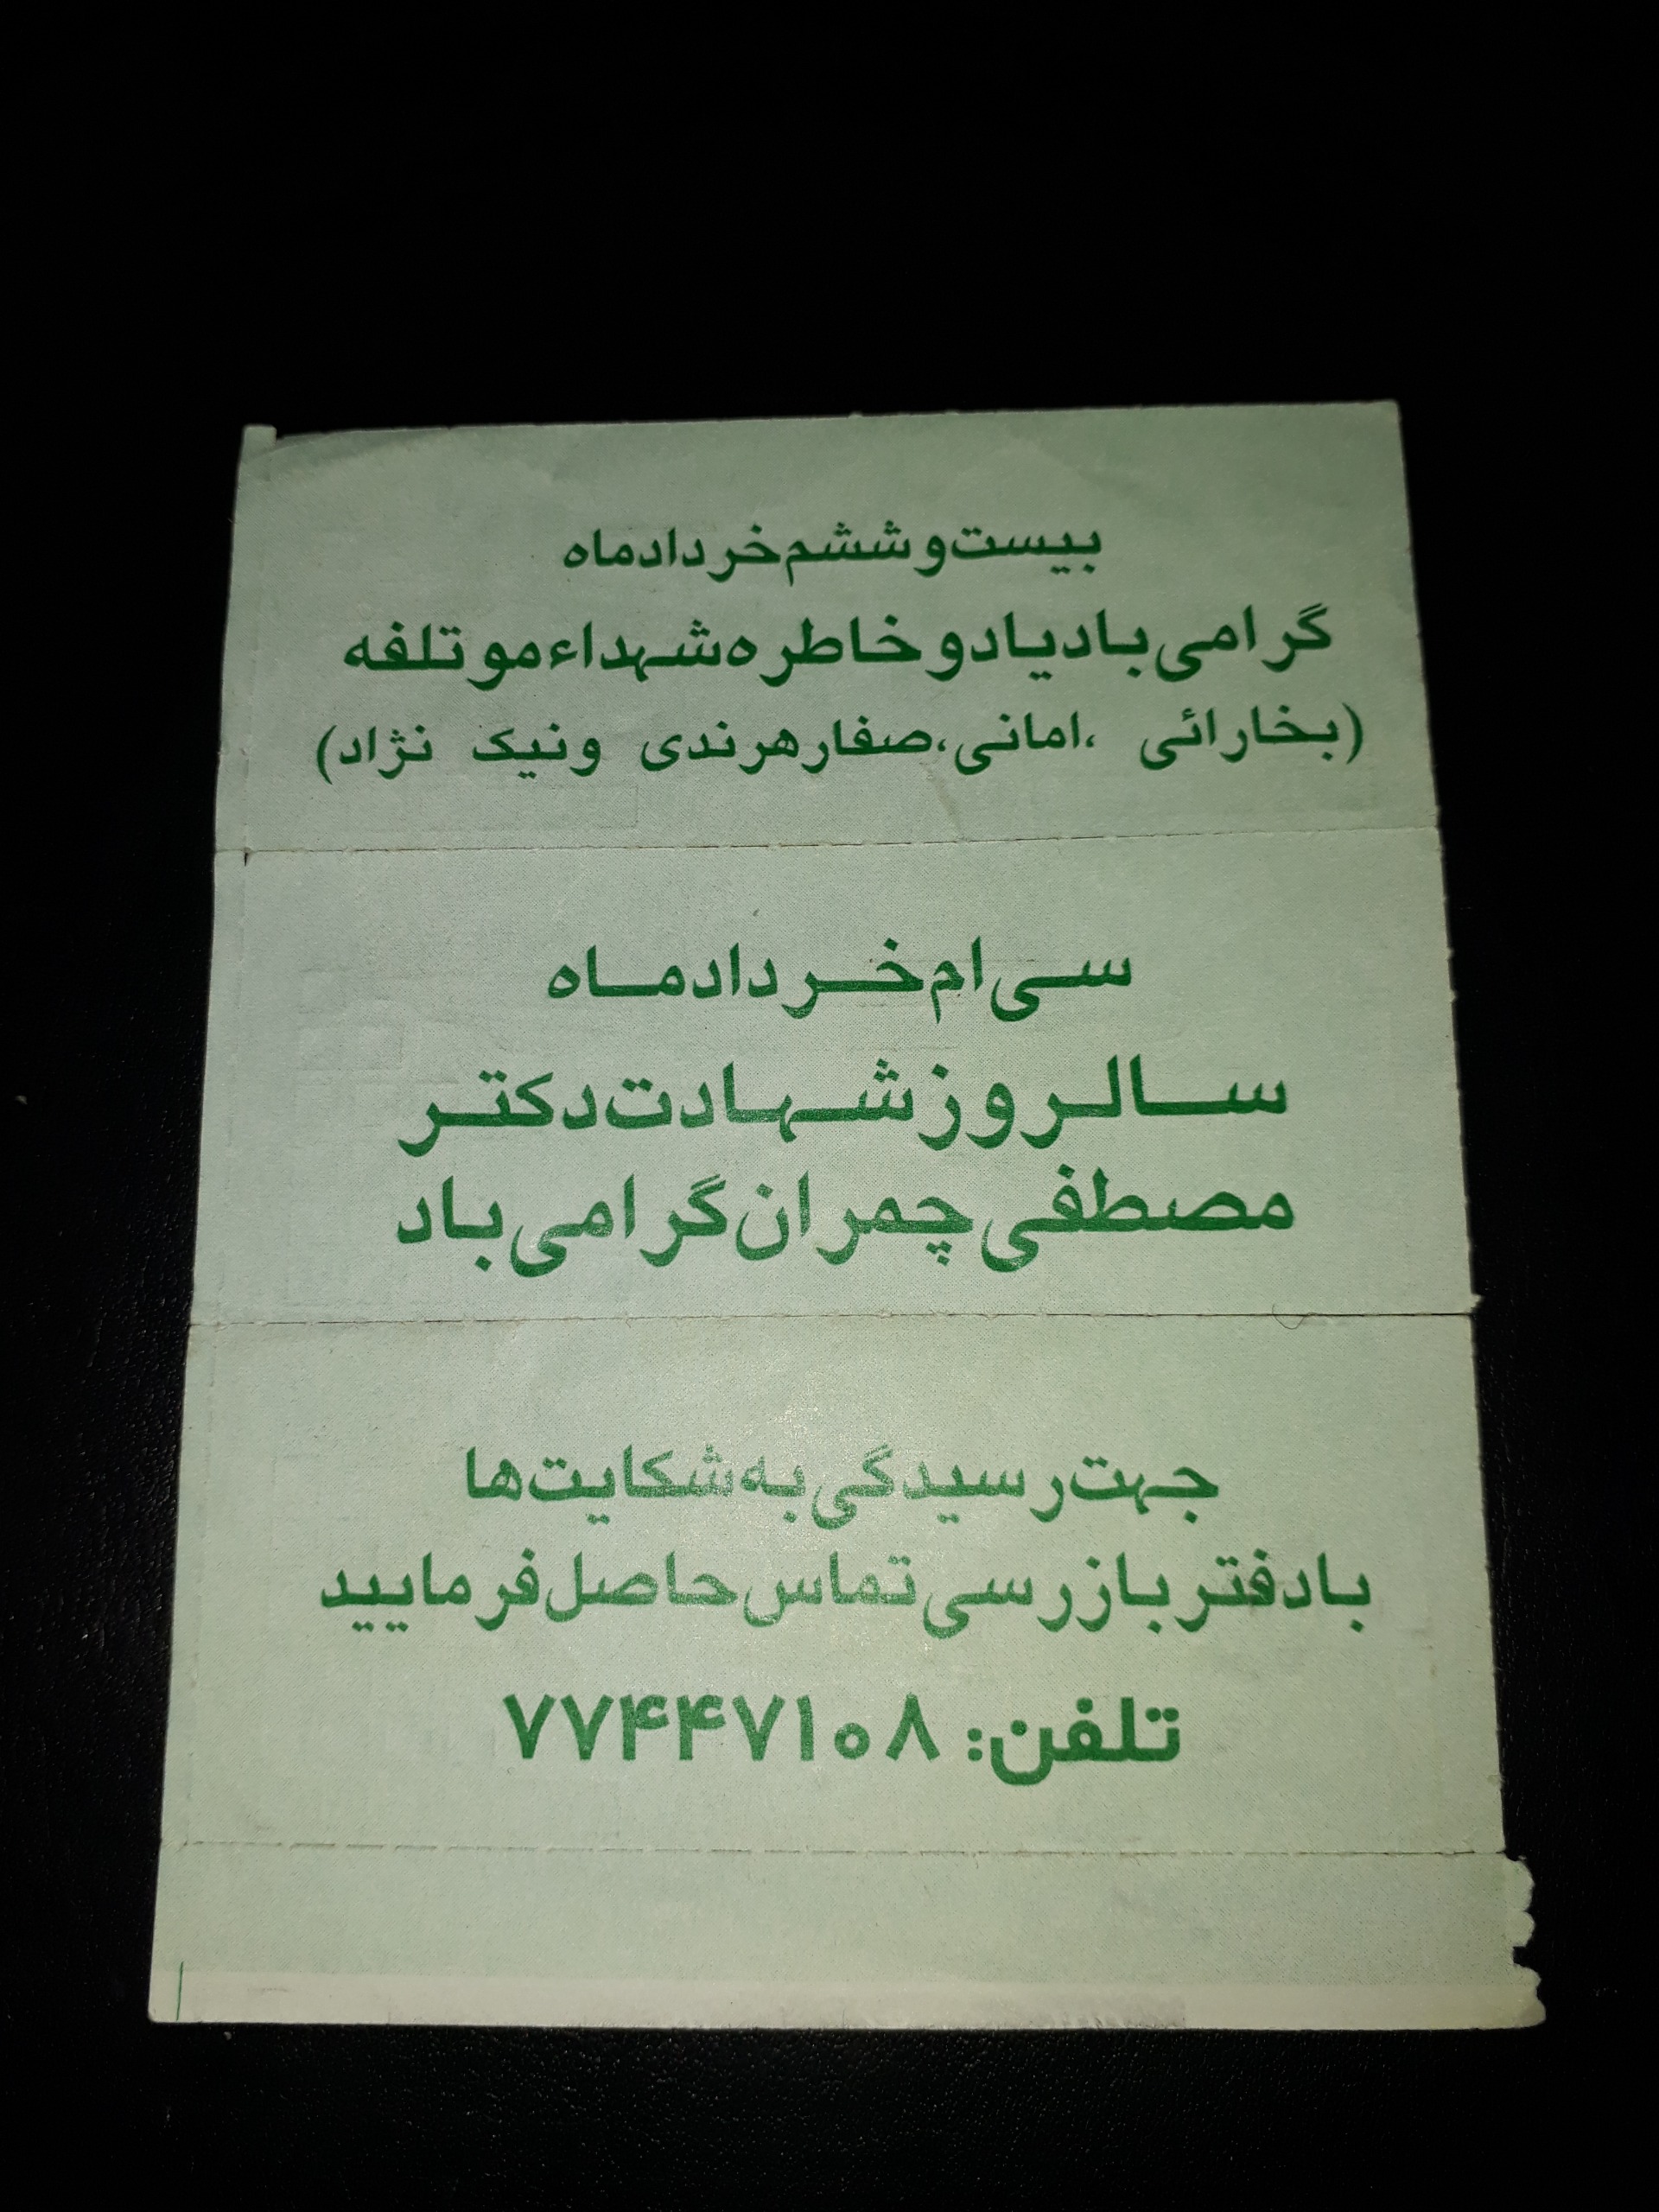 بیست و ششم خرداد ماه
گرامی باد یاد و خاطره شهداء موتلفه
(بخارائی ،امانی،صفارهرندی ونیک نژاد)
سی ام خرداد ماه
سالروز شهادت دکتر
مصطفی چمران گرامی باد
جهت رسیدگی به شکایت ها
با دفتر بازرسی تماس حاصل فرمایید
تلفن: ۷۷۴۴۷۱۰۸